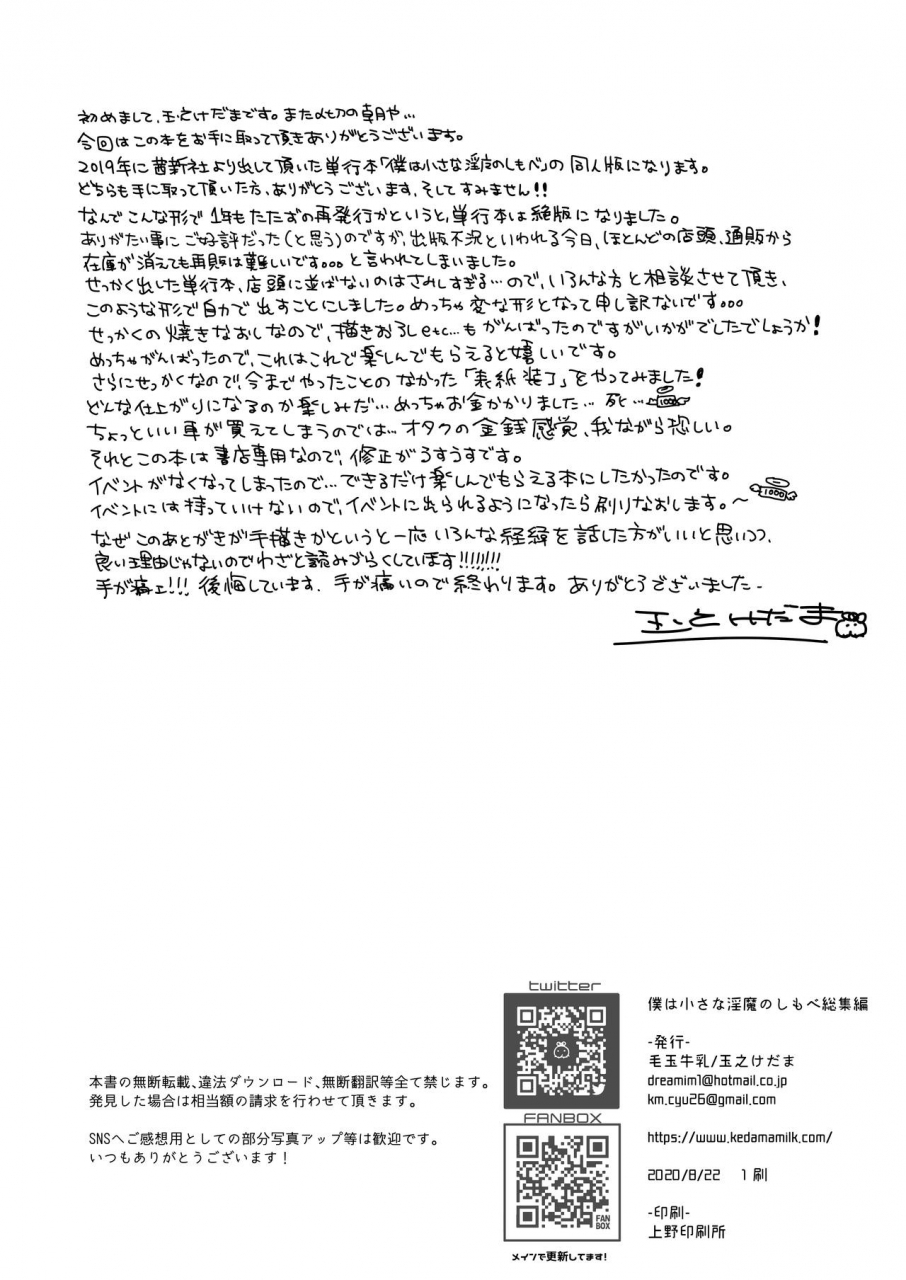 初めまして、玉之けだまです。またの朝や…
今回はこの本をお手に取って頂きありがとうございます。
2019年に茜新社より出して頂いた単行本「僕は小さな淫魔のしもべ」の同人版になります。
どちらも手に取って頂いた方、ありがとうございます、そしてすみません!!
なんでこんな形で1年もたたずの再発行かというと、単行本は絶版になりました。
ありがたい事にご好評だった(と思う)のですが、出版不況といわれる今日、ほとんどの店頭、通販から
在庫が消えても再販は難しいです。。。と言われてしまいました。
せっかく出した単行本、店頭に並ばないのはさみしすぎる…ので、いろんな方と相談させて頂き、
このような形で自力で出すことにしました。めっちゃ変な形となって申し訳ないです。。。
せっかくの焼きなおしなので、描きおろしetc…もがんばったのですがいかがでしたでしょうか!
めっちゃがんばったので、これはこれで楽しんでもらえると嬉しいです。
さらにせっかくなので、今までやったことのなかった「表紙装丁」をやってみました!
どんな仕上がりになるのか楽しみだ…めっちゃお金かかりました…死…
ちょっといい車が買えてしまうのでは…オタクの金銭感覚、我ながら恐しい。
それとこの本は書店専用なので、修正がうすうすです。
イベントがなくなってしまったので…できるだけ楽しんでもらえる本にしたかったのです。
イベントには持っていけないので、イベントに出られるようになったら刷りなおします。~
1000
なぜこのあとがきが手描きかというと一応いろんな経緯を話した方がいいと思いつつ、
良い理由じゃないのでわざと読みづらくしています!!!!!!!!
手が痛ェ!!! 後悔しています。手が痛いので終わります。ありがとうございました-
玉之けだま
twitter
FANBOX
FAN
BOX
メインで更新してます!
本書の無断転載、違法ダウンロード、無断翻訳等全て禁じます。
発見した場合は相当額の請求を行わせて頂きます。
SNSへご感想用としての部分写真アップ等は歓迎です。
いつもありがとうございます!
僕は小さな淫魔のしもべ総集編
-発行-
毛玉牛乳/玉之けだま
dreamim1@hotmail.co.jp
km.cyu26@gmail.com
https://www.kedamamilk.com/
2020/8/22 1刷
-印刷-
上野印刷所